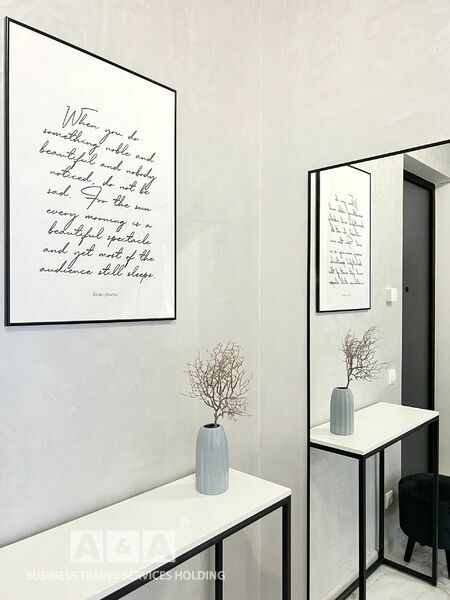 When you do
something noble and
beautiful and nobody
noticed, do not be
sad. For the sun
every morning is a
beautiful spectacle
and yet most of the
audience still sleeps.
JOHN LENNON
A & A®
BUSINESS TRAVEL SERVICES HOLDING